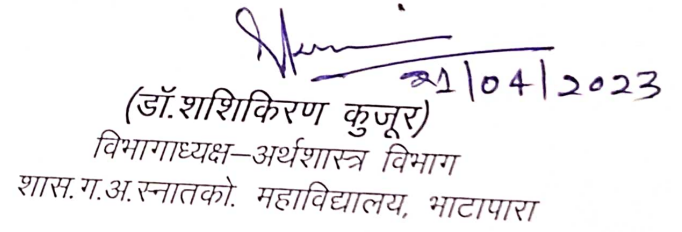 21/04/2023
(डॉ.शशिकिरण कुजूर)
विभागाध्यक्ष–अर्थशास्त्र विभाग
शास.ग.अ.स्नातको. महाविद्यालय, भाटापारा